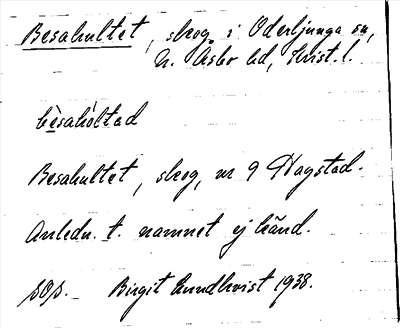 Besahultet, skog i Oderljunga sn,
N. Åsbo hd, Krist. l.
bèsahòltad
Besahultet, skog, nr 9 Hagstad.
Anledn. t. namnet ej känd.
Birgit Sundkvist 1938.